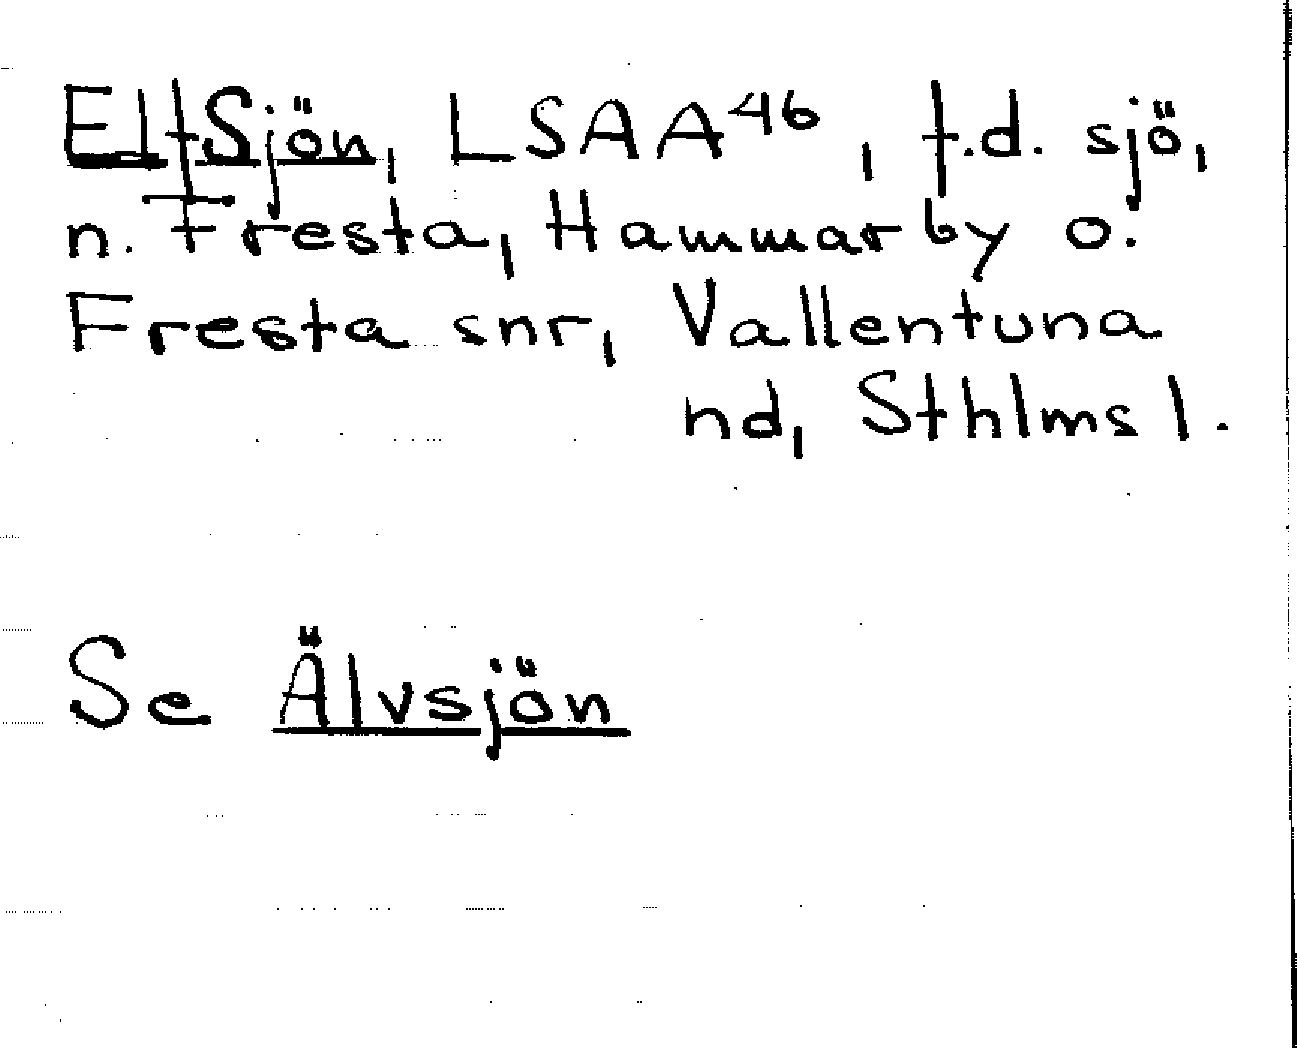 Elfsjön, LSAA46, f.d. sjö,
n. Fresta, Hammarby o.
Fresta snr, Vallentuna
nd, Sthlms l.
Se Älvsjön